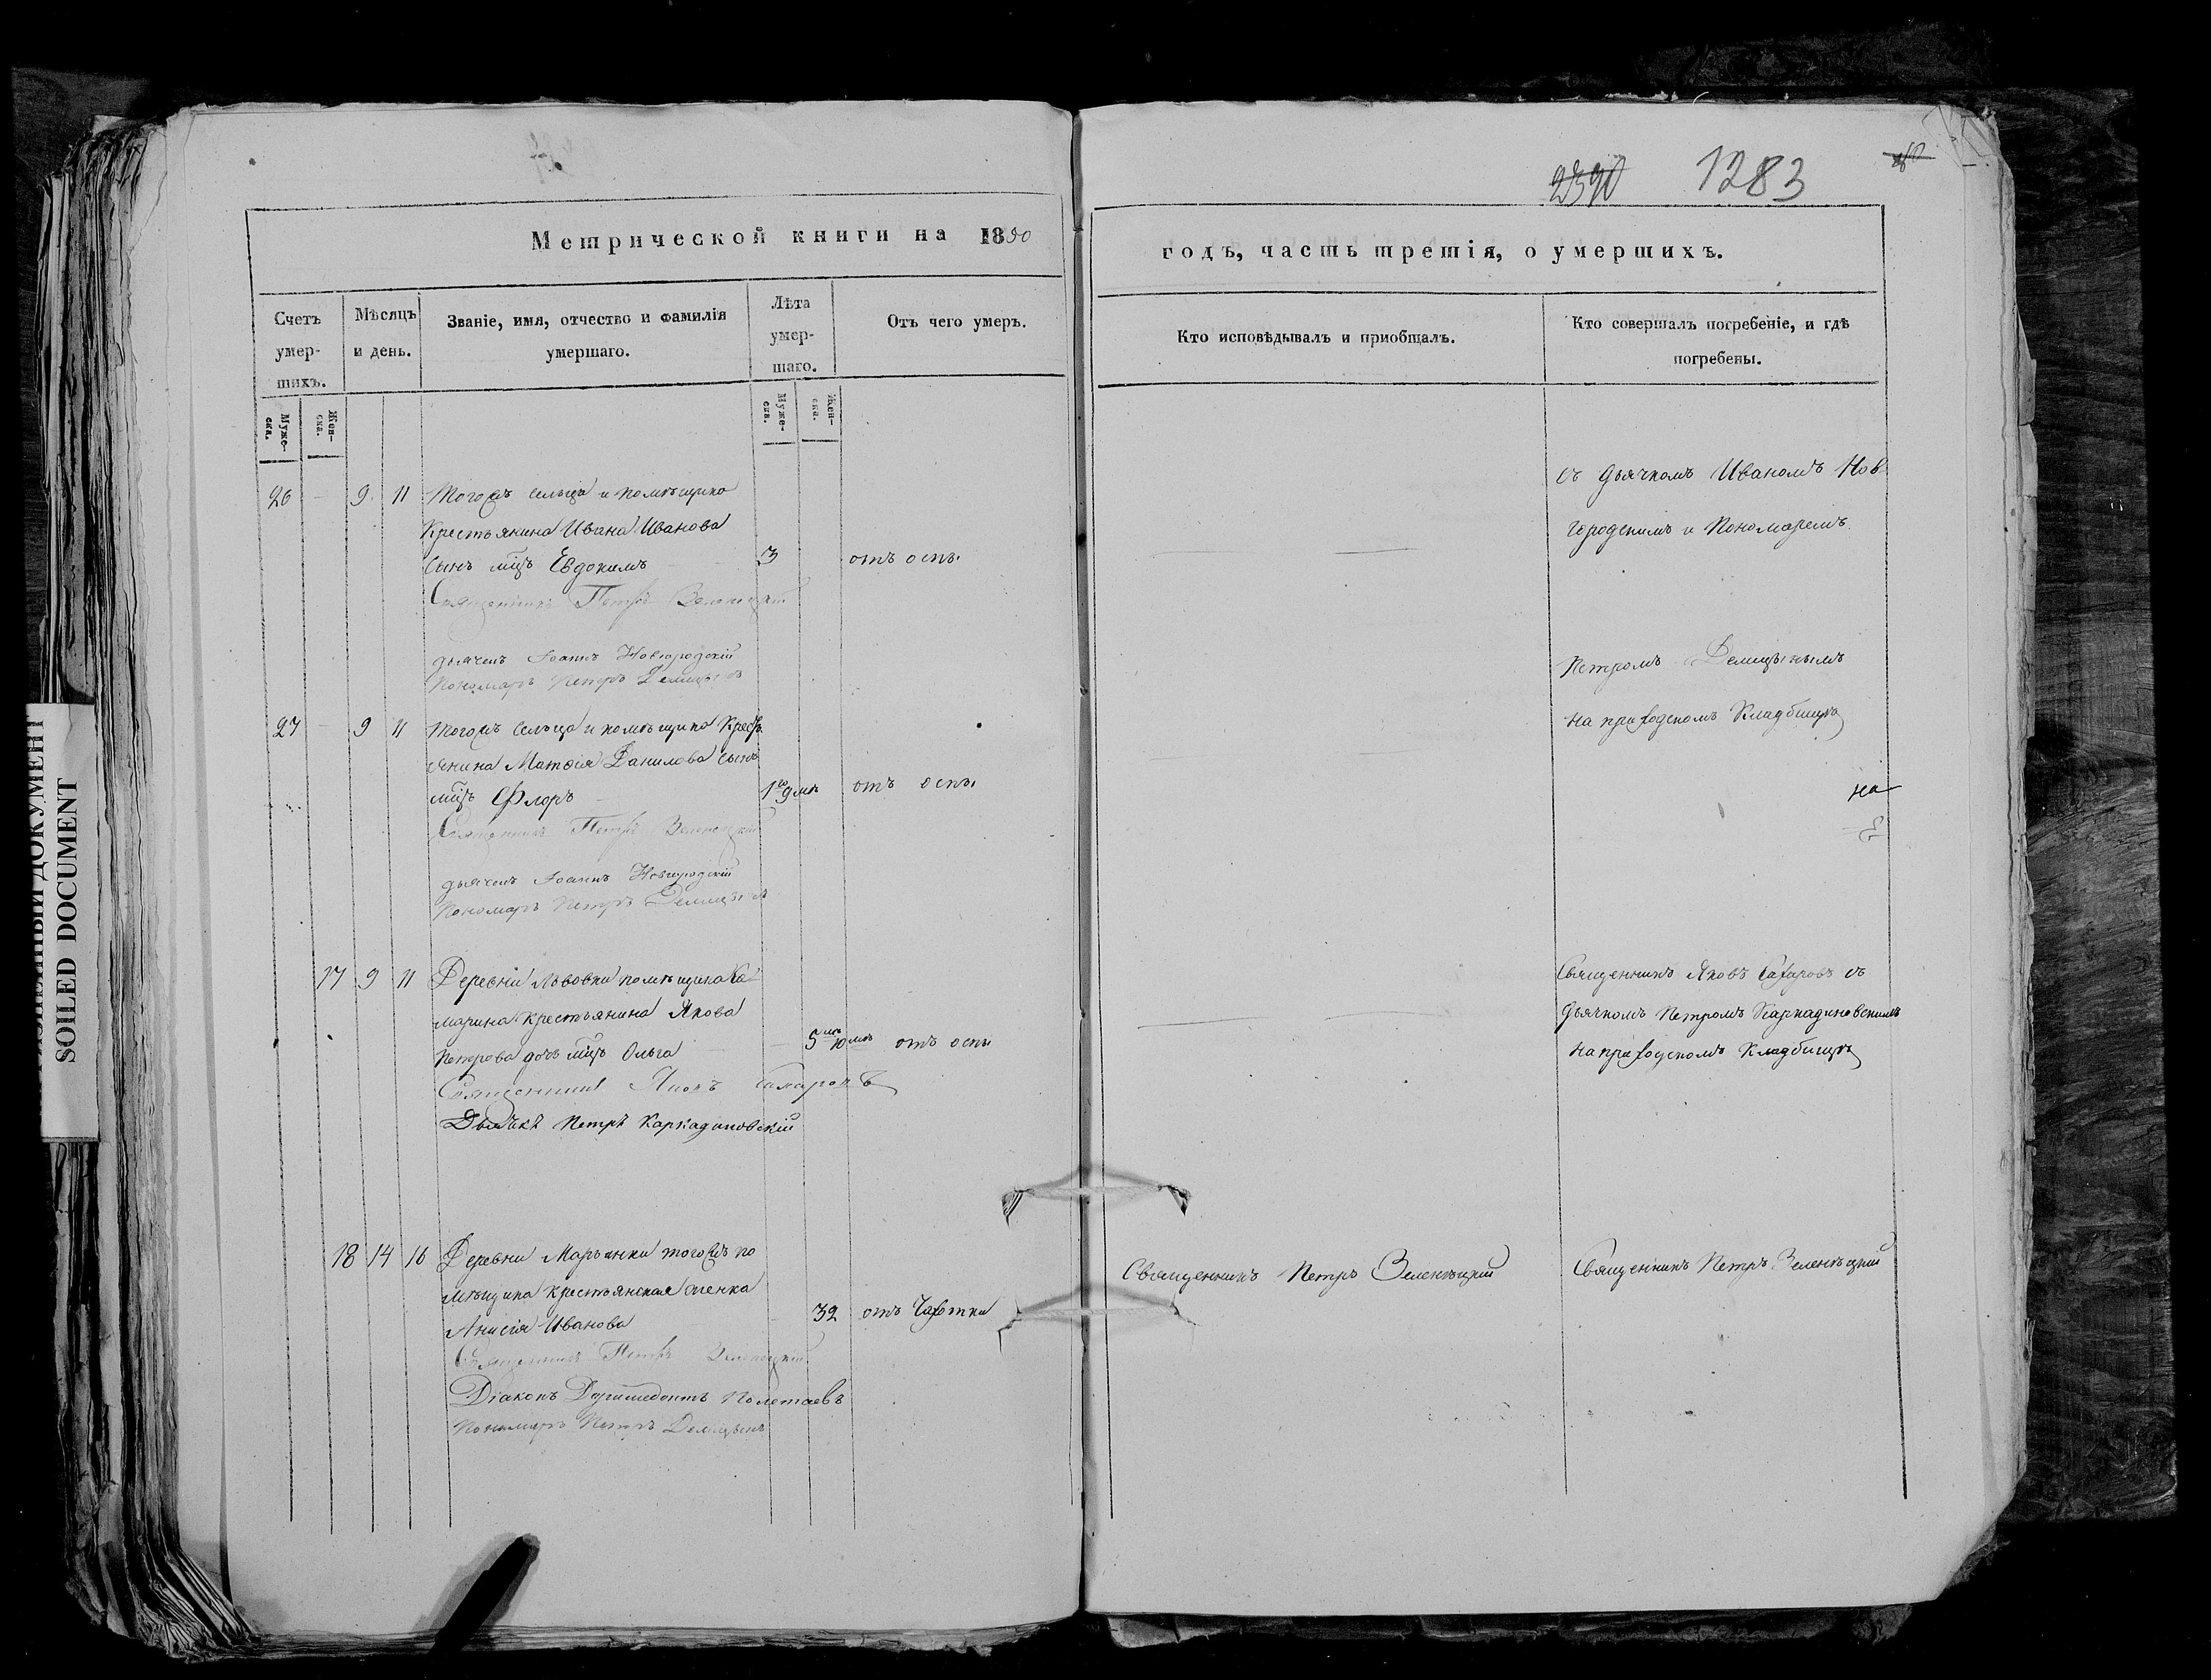 2390 1283
Метрической книги на 1850
годъ, часть третія, о умершихъ.
Счетъ умер-шихъ.
Мѣсяцъ и день.
Званіе, имя, отчество и фамилія умершаго.
Лѣта умер-шаго.
Отъ чего умеръ.
Кто исповѣдывалъ и приобщалъ.
Кто совершалъ погребеніе, и гдѣ погребены.
Муже-ска.
Жен-ска.
Муже-ска.
Жен-ска.
26 9 11 Тогожъ сельца и помѣщика
Крестьянина Ивана Иванова
сынъ мцъ Евдокимъ 3 отъ оспы
Священникъ Петръ Зеленецкій
дьячекъ Іоаннъ Новгородскій
Пономарь Петръ Демицынъ
съ дьячкомъ Иваномъ Нов
городскимъ и Пономаремъ
Петромъ Демицынымъ
на приходскомъ Кладбищѣ
27 9 11 Тогожъ сельца и помѣщика Крест
янина Матѳія Данилова сынъ
мцъ Флоръ отъ оспы
Священникъ Петръ Зеленецкій
дьячекъ Іоаннъ Новгородскій
Пономарь Петръ Демицынъ
на
17 9 11 Деревни Львовки помѣщика Ка
марина Крестьянина Якова
Петрова дочь мцъ Ольга 5 отъ оспы
Священникъ Яковъ
Дьячекъ Петръ Каркадиновскій
Священникъ Яковъ съ
дьячкомъ Петромъ Каркадиновскимъ
на приходскомъ Кладбищѣ
18 14 16 Деревни Марьинки тогожъ по
мѣщика крестьянская женка
Анисія Иванова 32 отъ Чахотки
Священникъ Петръ Зеленецкій
Діаконъ Доримедонтъ Полетаевъ
Пономарь Петръ Демицынъ
Священникъ Петръ Зеленецкій
Священникъ Петръ Зеленецкій
ДОКУМЕНТ
SOILED DOCUMENT